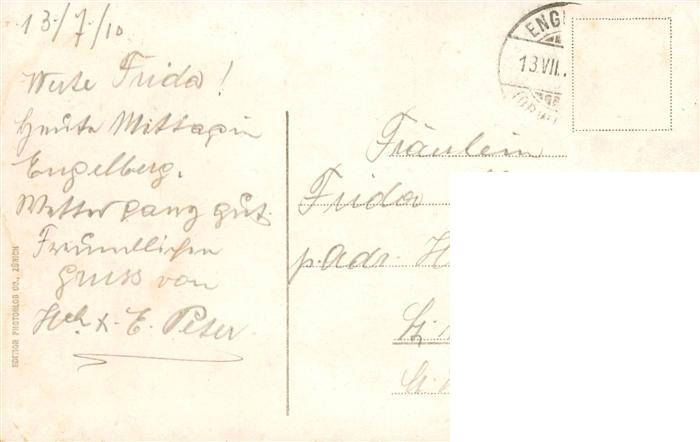 13/7/10
Werte Frida!
Heute Mittag in
Engelberg.
Wetter ganz gut.
Freundlichen
Gruss von
Hch & E. Peter
EDITION PHOTOGLOB CO., ZÜRICH
ENG
13.VII.
Fräulein
Frida
p. Adr. H